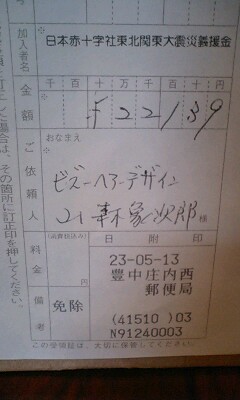 加入者名
日本赤十字社東北関東大震災義援金
金額
千 百 十 万 千 百 十 円
¥22139
ご依頼人
おなまえ
ビズーヘアーデザイン
様
料金
(消費税込み)
円
日附印
23-05-13
豊中庄内西
郵便局
備考
免除
(41510 )03
N91240003
この受領証は、大切に保管してください。
その箇所に訂正印を押してください。